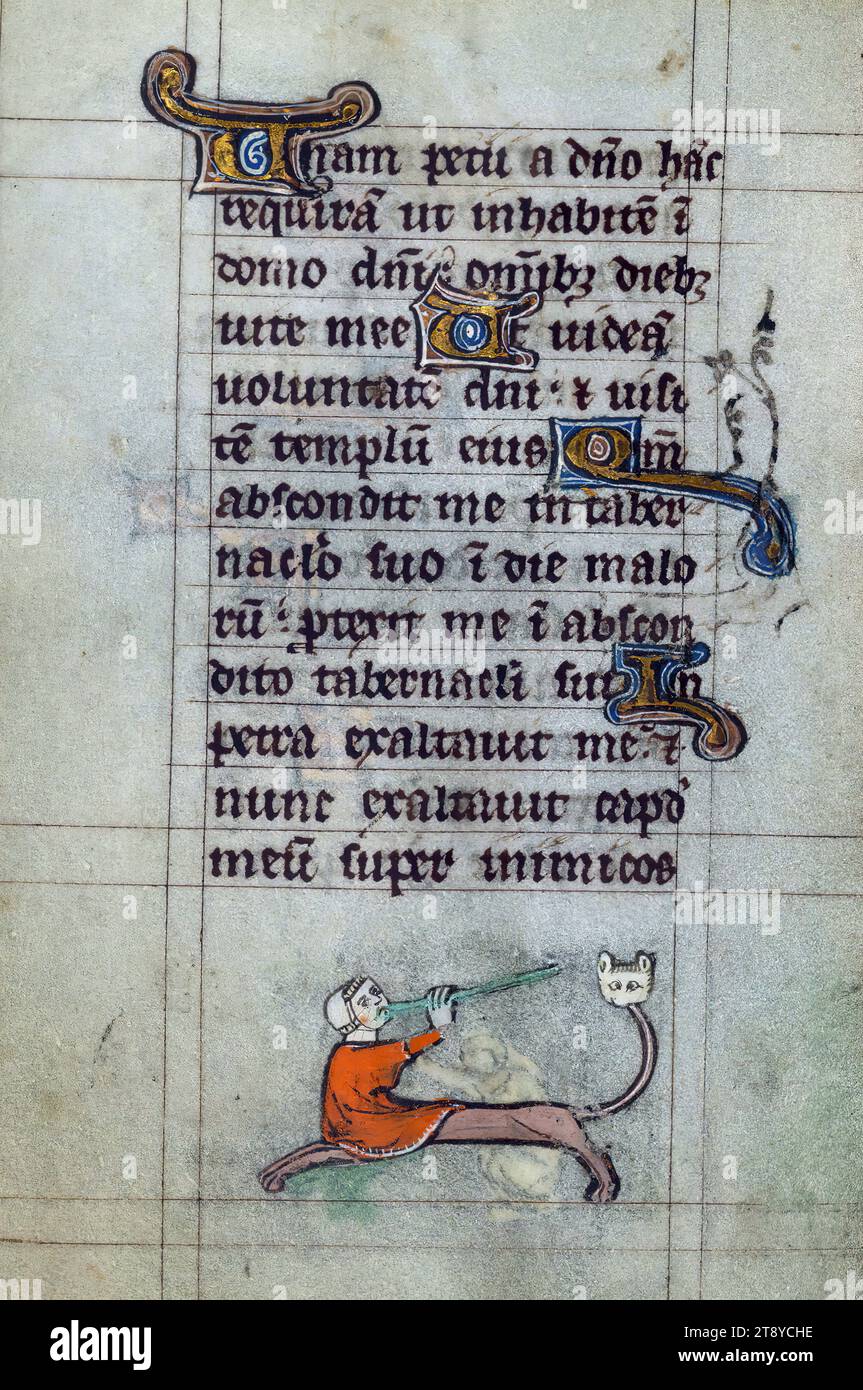 Unam petii a dño hãc
requirã ut inhabitẽ ĩ
domo dñi : omĩbꝫ diebꝫ
uite mee Ut uideã
uoluntatẽ dñi : ⁊ uisi
tẽ templũ eius Qm̃
abscondit me in taber
naclo suo ĩ die malo
rũ : ꝓtexit me ĩ abscon
dito tabernacli sui In
petra exaltauit me : ⁊
nunc exaltauit capđ
meũ super inimicos
alamy
Image ID: 2T8YCHE
www.alamy.com